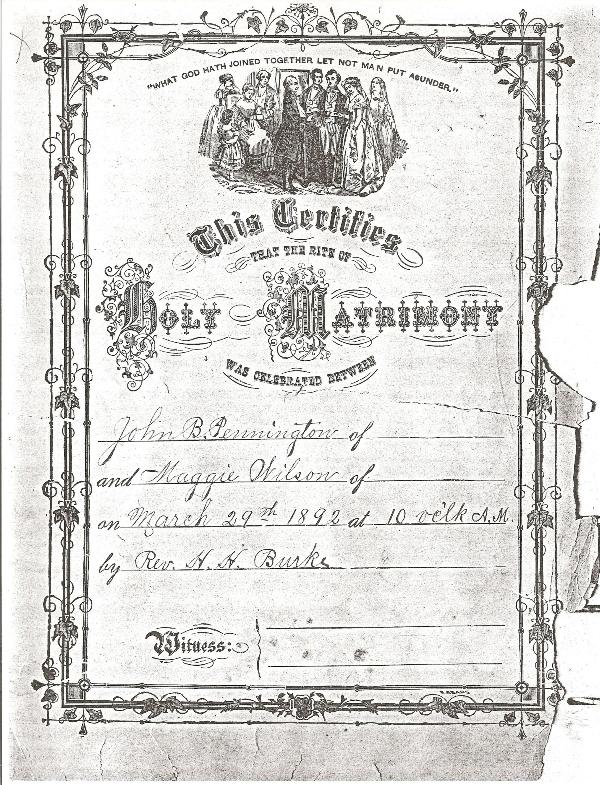 "WHAT GOD HATH JOINED TOGETHER LET NOT MAN PUT ASUNDER."
This Certifies
THAT THE RITE OF
HOLY MATRIMONY
WAS CELEBRATED BETWEEN
John B. Pennington of
and Maggie Wilson of
on March 29th 1892 at 10 o'clk A.M.
by Rev. H. H. Burke
Witness: